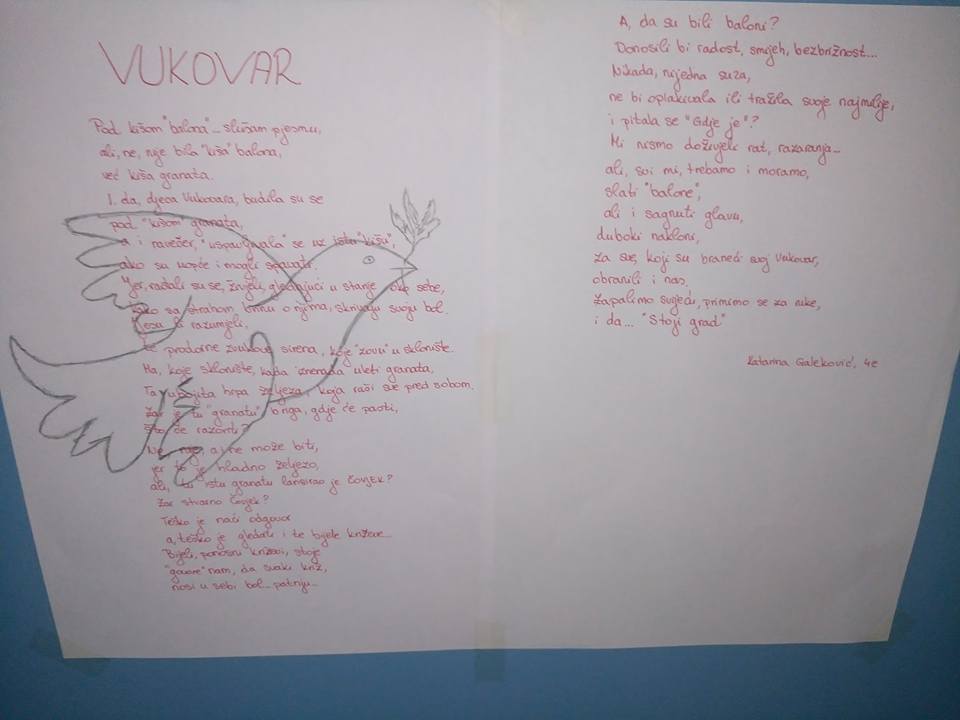 VUKOVAR
Pod kišom "balona"... slušam pjesmu,
ali, ne, nije bila "kiša" balona,
već kiša granata.
I, da, djeca Vukovara, budila su se
pod "kišom" granata,
a i navečer, "uspavljivala" se uz istu "kišu",
ako su uopće i mogli spavati.
Jer, rađali su se, živjeli, gledajući u stanje oko sebe,
kako sa strahom, brinu o njima, skrivaju svoju bol.
Jesu li razumjeli,
te prodorne zvukove sirena, koje "zovu" u sklonište.
Ma, koje sklonište, kada iznenada uleti granata,
Ta ubojita hrpa željeza, koja ruši sve pred sobom.
Zar je tu "granatu" briga, gdje će pasti,
što će razoriti?
Ne, nije, a i ne može biti,
jer to je hladno željezo,
ali, tu istu granatu lansirao je ČOVJEK?
Zar stvarno čovjek?
Teško je naći odgovor
a, teško je gledati i te bijele križeve...
Bijeli, ponosni križevi, stoje
"govore" nam, da svaki križ,
nosi u sebi bol... patnju...
A, da su bili baloni?
Donosili bi radost, smijeh, bezbrižnost...
Nikada, nijedna suza,
ne bi oplakivala ili tražila svoje najmilije,
i pitala se "Gdje je"?
Mi nismo doživjeli rat, razaranja...
ali, svi mi, trebamo i moramo,
slati "balone",
ali i sagnuti glavu,
duboki nakloni,
za sve, koji su braneći svoj Vukovar,
obranili i nas.
Zapalimo svijeću, primimo se za ruke,
i da... "Stoji grad"
Katarina Galeković, 4e